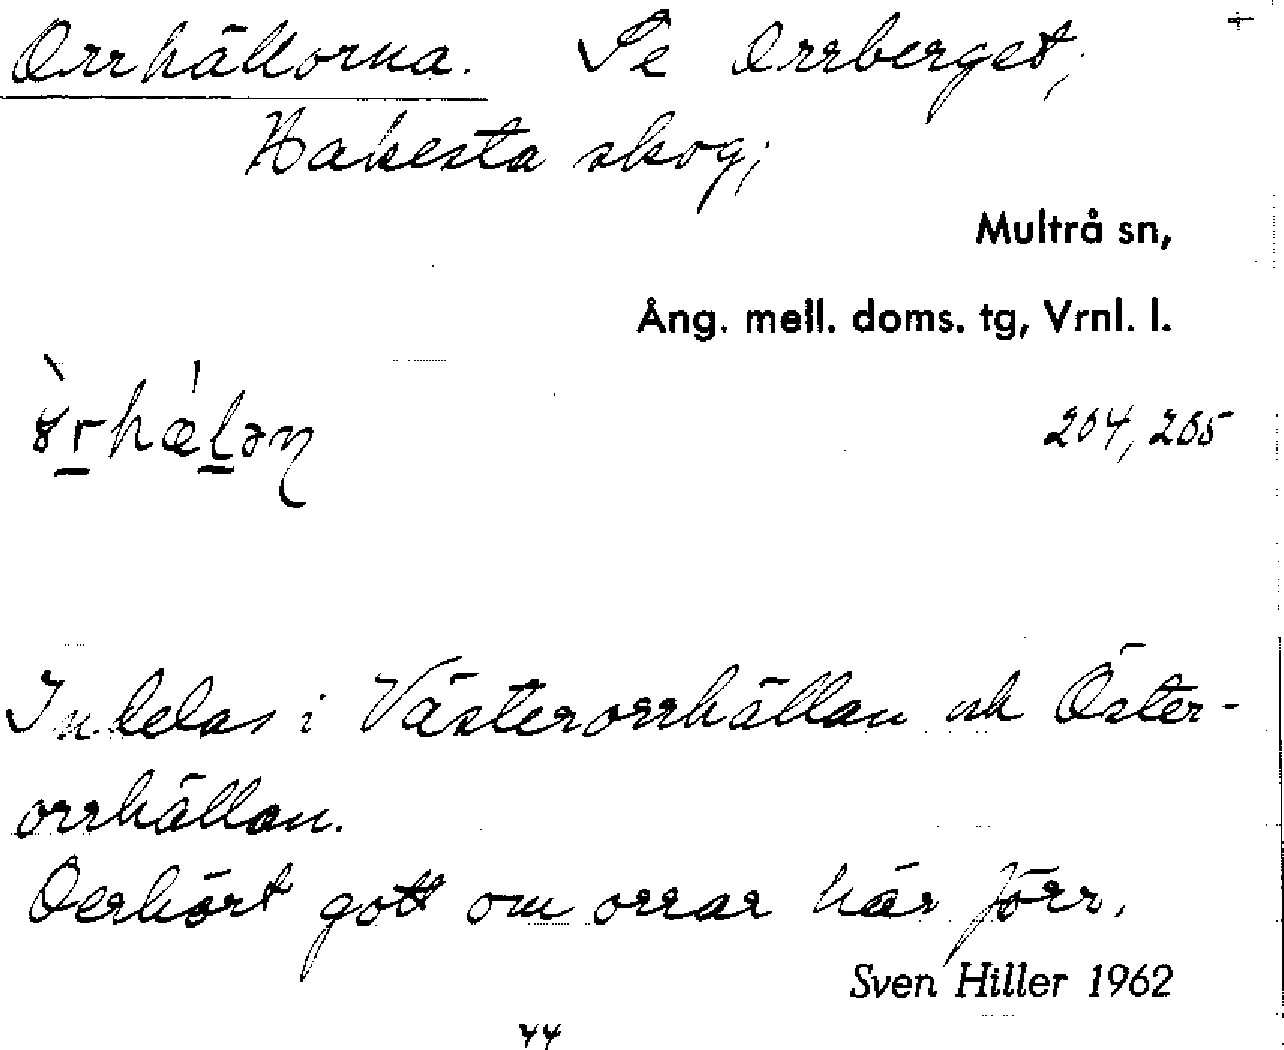 Orrhällorna. Se Orrberget,
Hakesta skog;
Multrå sn,
Ång. mell. doms. tg, Vrnl. l.
204, 205
Indelas i Västerorrhällan och Öster-
orrhällan.
Oerhört gott om orrar här förr.
Sven Hiller 1962